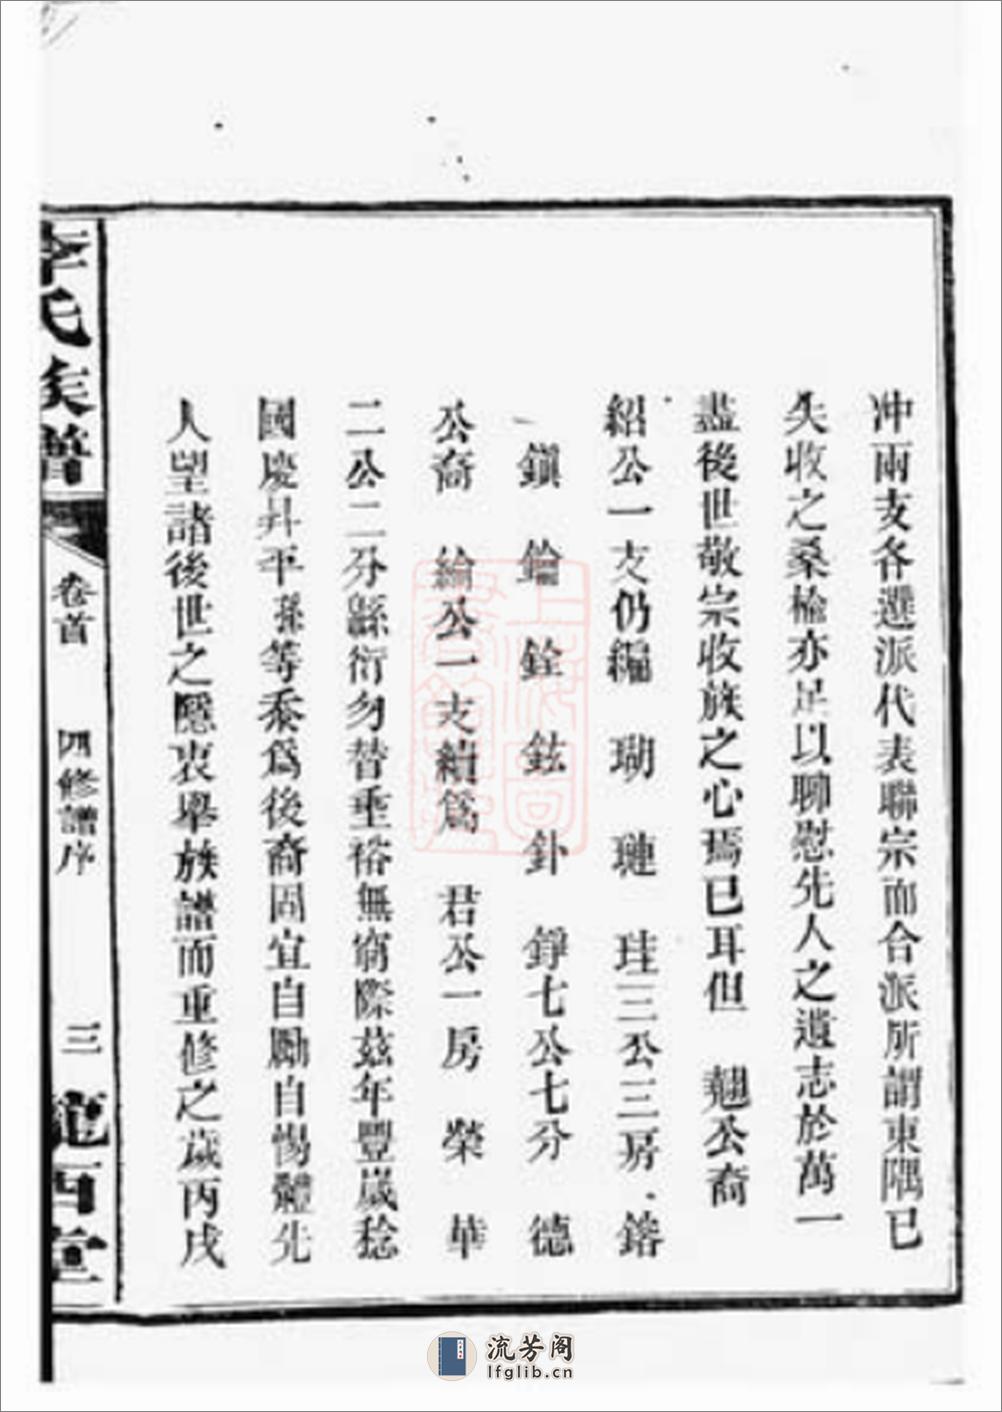 冲兩支各選派代表聯宗而合派所謂東隅已
失收之桑榆亦足以聊慰先人之遺志於萬一
盡後世敬宗收族之心焉已耳但 翹公裔
紹公一支仍編 瑚 璉 珪三公三房 鎔
鎮 錀 銓 鉉 釙 錚七公七分 德
公裔 綸公一支續爲 君公一房 榮 華
二公二分緜衍勿替垂裕無窮際茲年豐歲稔
國慶昇平孫等忝爲後裔固宜自勵自惕體先
人望諸後世之隱衷舉族譜而重修之歲丙戌
李氏族譜 卷首 四修譜序 三 隴西堂
上海圖書館藏
流芳阁
lfglib.cn